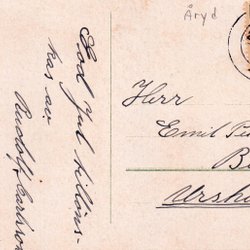 Åryd
God Jul tillöns-
kas av
Rudolf Carlsson
Herr
Emil Pe
B
Urshu